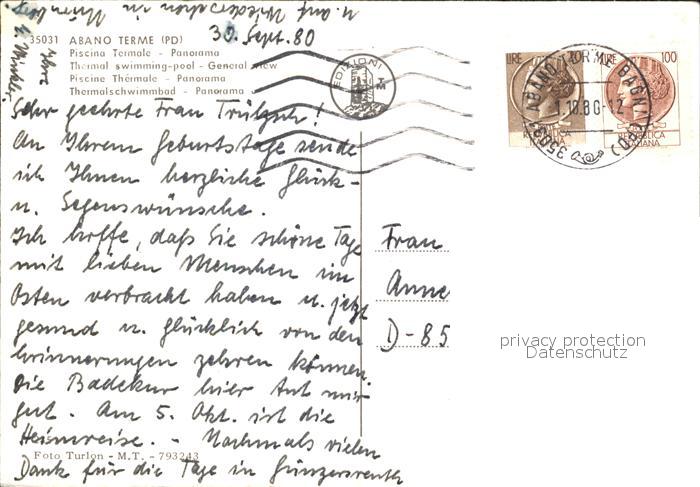 35031 ABANO TERME (PD)
Piscina Termale - Panorama
Thermal swimming-pool - General view
Piscine Thérmale - Panorama
Thermalschwimmbad - Panorama
30. Sept. 80
EDIZIONI
TM
LIRE 100
LIRE 100
REPUBBLICA ITALIANA
REPUBBLICA ITALIANA
35031 ABANO TERME BAGNI (PD)
1.10.80-12
Sehr geehrte Frau Trültzsch!
An Ihrem Geburtstage sende
ich Ihnen herzliche Glück-
u. Segenswünsche.
Ich hoffe, daß Sie schöne Tage
mit lieben Menschen im
Osten verbracht haben u. jetzt
gesund u. glücklich von den
Erinnerungen zehren können.
Die Badekur hier tut mir
gut. Am 5. Okt. ist die
Heimreise. - Nochmals vielen
Dank für die Tage in Günzersreuth
u. auf Wiedersehen in
Ihre
Frau
Anne
D-85
privacy protection
Datenschutz
Foto Turlon - M.T. - 793243